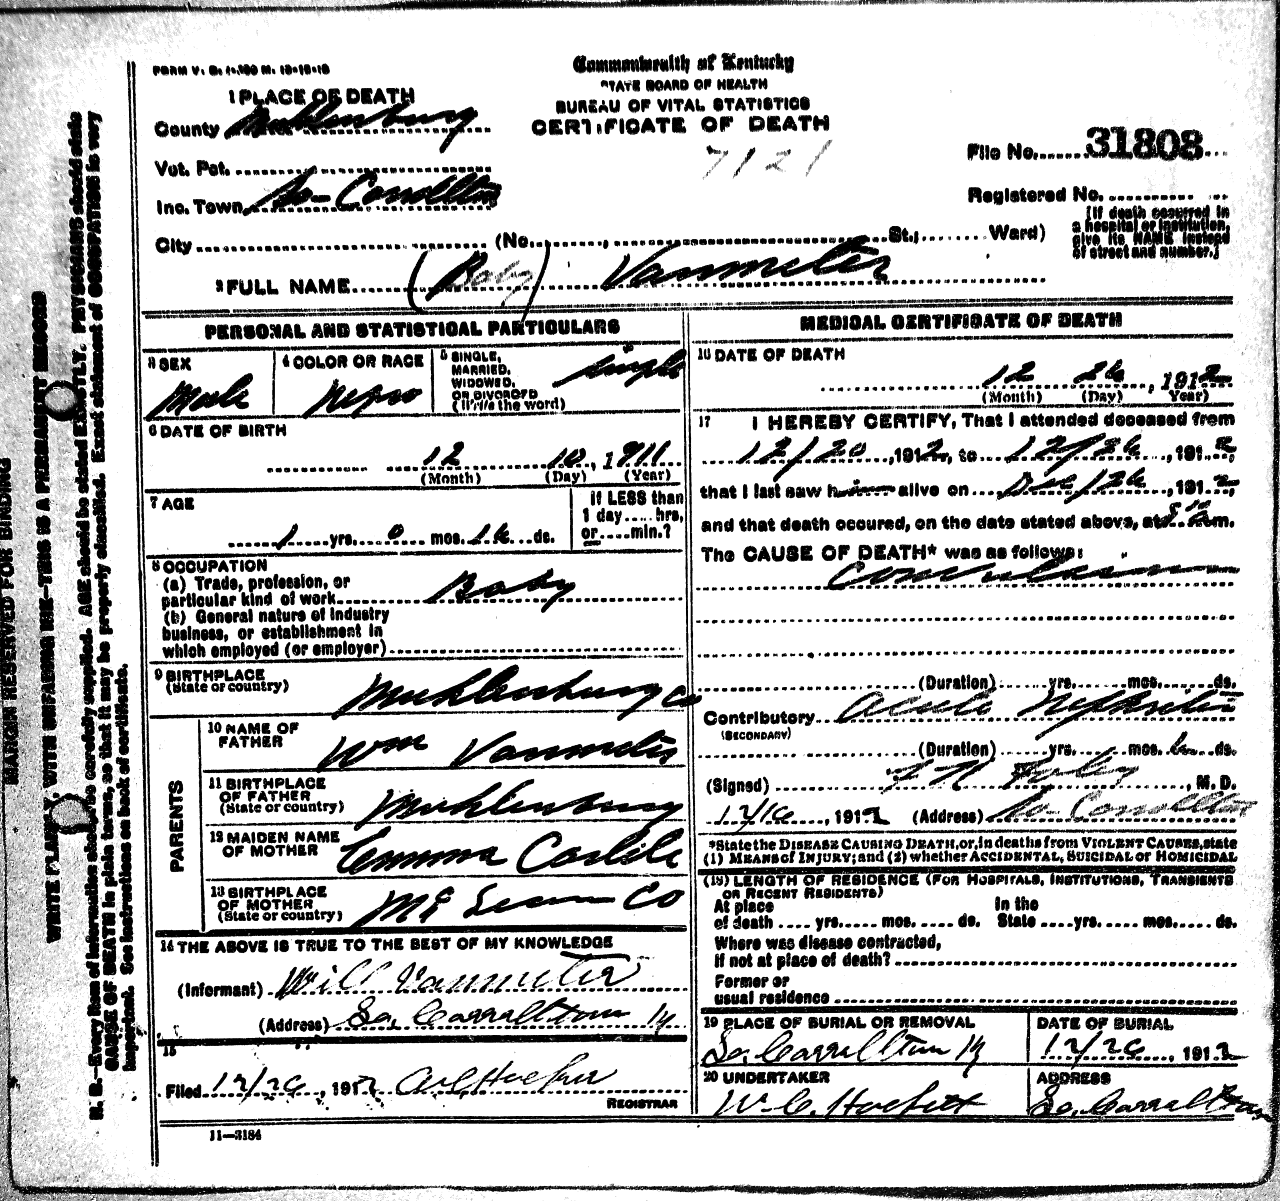 FORM V. S. 1-100 M. 12-10-10
Commonwealth of Kentucky
STATE BOARD OF HEALTH
BUREAU OF VITAL STATISTICS
CERTIFICATE OF DEATH
7121
File No. 31808
Registered No.
1 PLACE OF DEATH
County Muhlenburg
Vot. Pct.
Inc. Town So-Carrollton
City (No. , St., Ward)
[If death occurred in a hospital or institution, give its NAME instead of street and number.]
2 FULL NAME (Baby) Vanmeter
PERSONAL AND STATISTICAL PARTICULARS
3 SEX
Male
4 COLOR OR RACE
Negro
5 SINGLE, MARRIED, WIDOWED, OR DIVORCED (Write the word)
single
6 DATE OF BIRTH
12 10, 1911
(Month) (Day) (Year)
7 AGE
1 yrs. 0 mos. 16 ds.
If LESS than 1 day .... hrs, or .... min.?
8 OCCUPATION
(a) Trade, profession, or particular kind of work Baby
(b) General nature of industry business, or establishment in which employed (or employer)
9 BIRTHPLACE
(State or country) Muhlenburg Co
PARENTS
10 NAME OF FATHER Wm Vanmeter
11 BIRTHPLACE OF FATHER (State or country) Muhlenburg
12 MAIDEN NAME OF MOTHER Emma Carlile
13 BIRTHPLACE OF MOTHER (State or country) Mc Lean Co
14 THE ABOVE IS TRUE TO THE BEST OF MY KNOWLEDGE
(Informant) Will Vanmeter
(Address) So, Carrolltown Ky
15
Filed 12/26, 1912
REGISTRAR
11-3184
MEDICAL CERTIFICATE OF DEATH
16 DATE OF DEATH
12 26, 1912
(Month) (Day) Year)
17 I HEREBY CERTIFY, That I attended deceased from
12/20, 1912, to 12/26, 1912,
that I last saw him alive on Dec/26, 1912,
and that death occured, on the date stated above, at m.
The CAUSE OF DEATH* was as follows:
Convulsions
(Duration) yrs. mos. ds.
Contributory Acute Nephritis
(SECONDARY)
(Duration) yrs. mos. 6 ds.
(Signed) M. D.
12/26, 1912 (Address) So-Carrollton
*State the DISEASE CAUSING DEATH, or, in deaths from VIOLENT CAUSES, state
(1) MEANS of INJURY; and (2) whether ACCIDENTAL, SUICIDAL or HOMICIDAL
(18) LENGTH OF RESIDENCE (FOR HOSPITALS, INSTITUTIONS, TRANSIENTS OR RECENT RESIDENTS)
At place of death .... yrs. mos. ds. In the State .... yrs. mos. ds.
Where was disease contracted,
If not at place of death?
Former or
usual residence
19 PLACE OF BURIAL OR REMOVAL
So, Carrolltown Ky
DATE OF BURIAL
12/26, 1912
20 UNDERTAKER
ADDRESS
So, Carrolltown
MARGIN RESERVED FOR BINDING
WRITE PLAINLY, WITH UNFADING INK—THIS IS A PERMANENT RECORD
N. B.—Every item of information should be carefully supplied. AGE should be stated EXACTLY. PHYSICIANS should state
CAUSE OF DEATH in plain terms, so that it may be properly classified. Exact statement of OCCUPATION is very
important. See instructions on back of certificate.